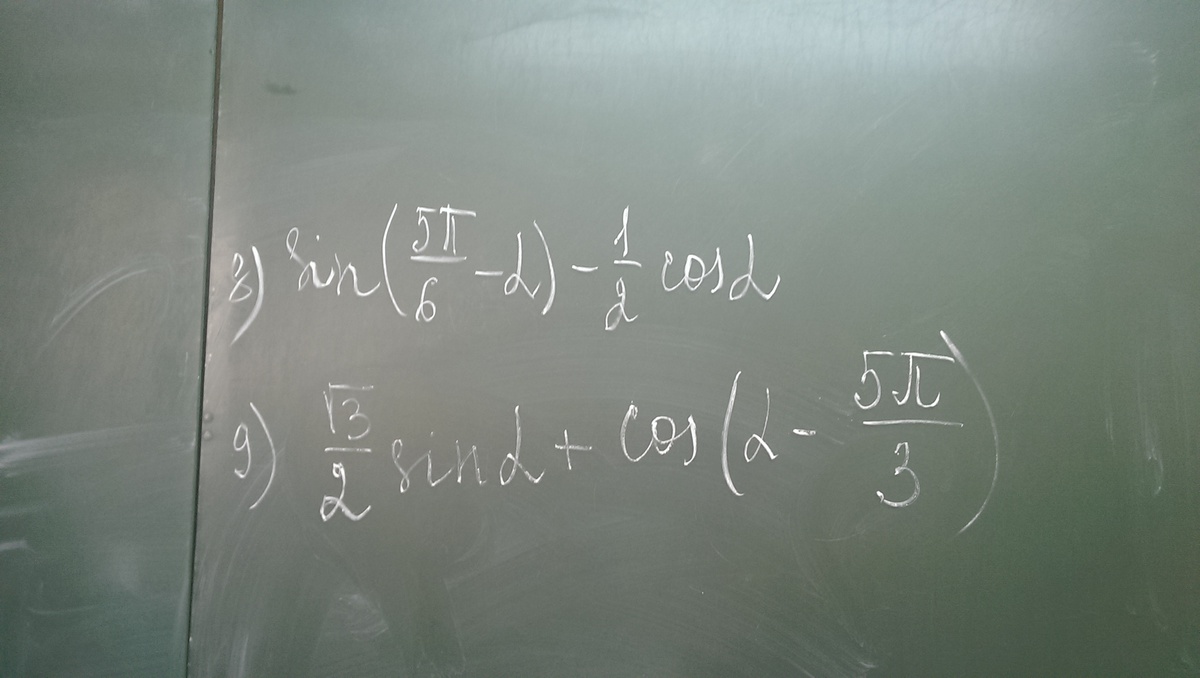 8) sin(5π/6 - α) - 1/2 cosα
9) √3/2 sinα + cos(α - 5π/3)